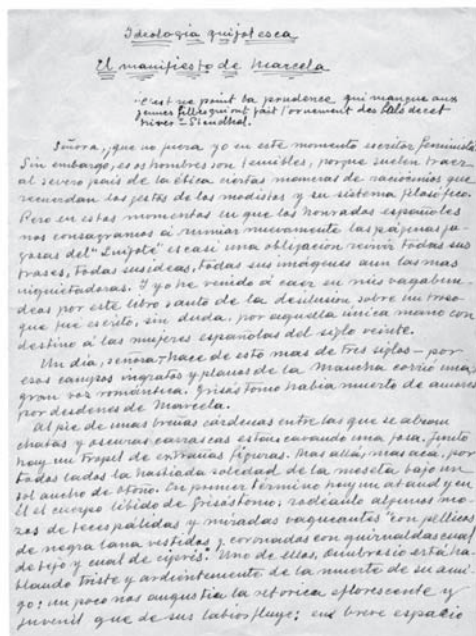 Ideología quijotesca
El manifiesto de Marcela
"C'est ne point la prudence qui manque aux
jeunes filles qui ont fait l'ornement des bals de cet
hiver" – Stendhal.
Señora, ¡que no fuera yo en este momento escritor feminista!
Sin embargo, esos hombres son temibles, porque suelen traer
al severo país de la ética ciertas maneras de raciocinios que
recuerdan los gestos de los modistos y su sistema filosófico.
Pero en estos momentos en que los honrados españoles
nos consagramos á rumiar nuevamente las páginas ja-
gosas del "Quijote" es casi una obligación revivir todas sus
frases, todas sus ideas, todas sus imágenes aun las mas
inquietadoras. Y yo he venido á caer en mis vagabun-
deos por este libro santo de la desilusion sobre un trozo
que fué escrito, sin duda, por aquella única mano con
destino á las mujeres españolas del siglo veinte.
Un día, señora – hace de esto mas de tres siglos – por
esos campos ingratos y planos de la Mancha corrió una
gran voz romántica. Grisóstomo habia muerto de amores
por desdenes de Marcela.
Al pie de unas breñas cárdenas entre las que se abren
chatas y oscuras carrascas estan cavando una fosa. Junto
hay un tropel de extrañas figuras. Mas allá, mas acá, por
todos lados la hastiada soledad de la meseta bajo un
sol ancho de otoño. En primer término hay un ataud y en
él el cuerpo libido de Grisóstomo; rodéanlo algunos mo-
zos de teces pálidas y miradas vagueantes "con pellicos
de negra lana vestidos y coronados con guirnaldas cual
de tejo y cual de ciprés." Uno de ellos, Ambrosio está ha-
blando triste y ardientemente de la muerte de su ami-
go: un poco nos angustia la retorica eflorescente y
juvenil que de sus labios fluye: en breve espacio